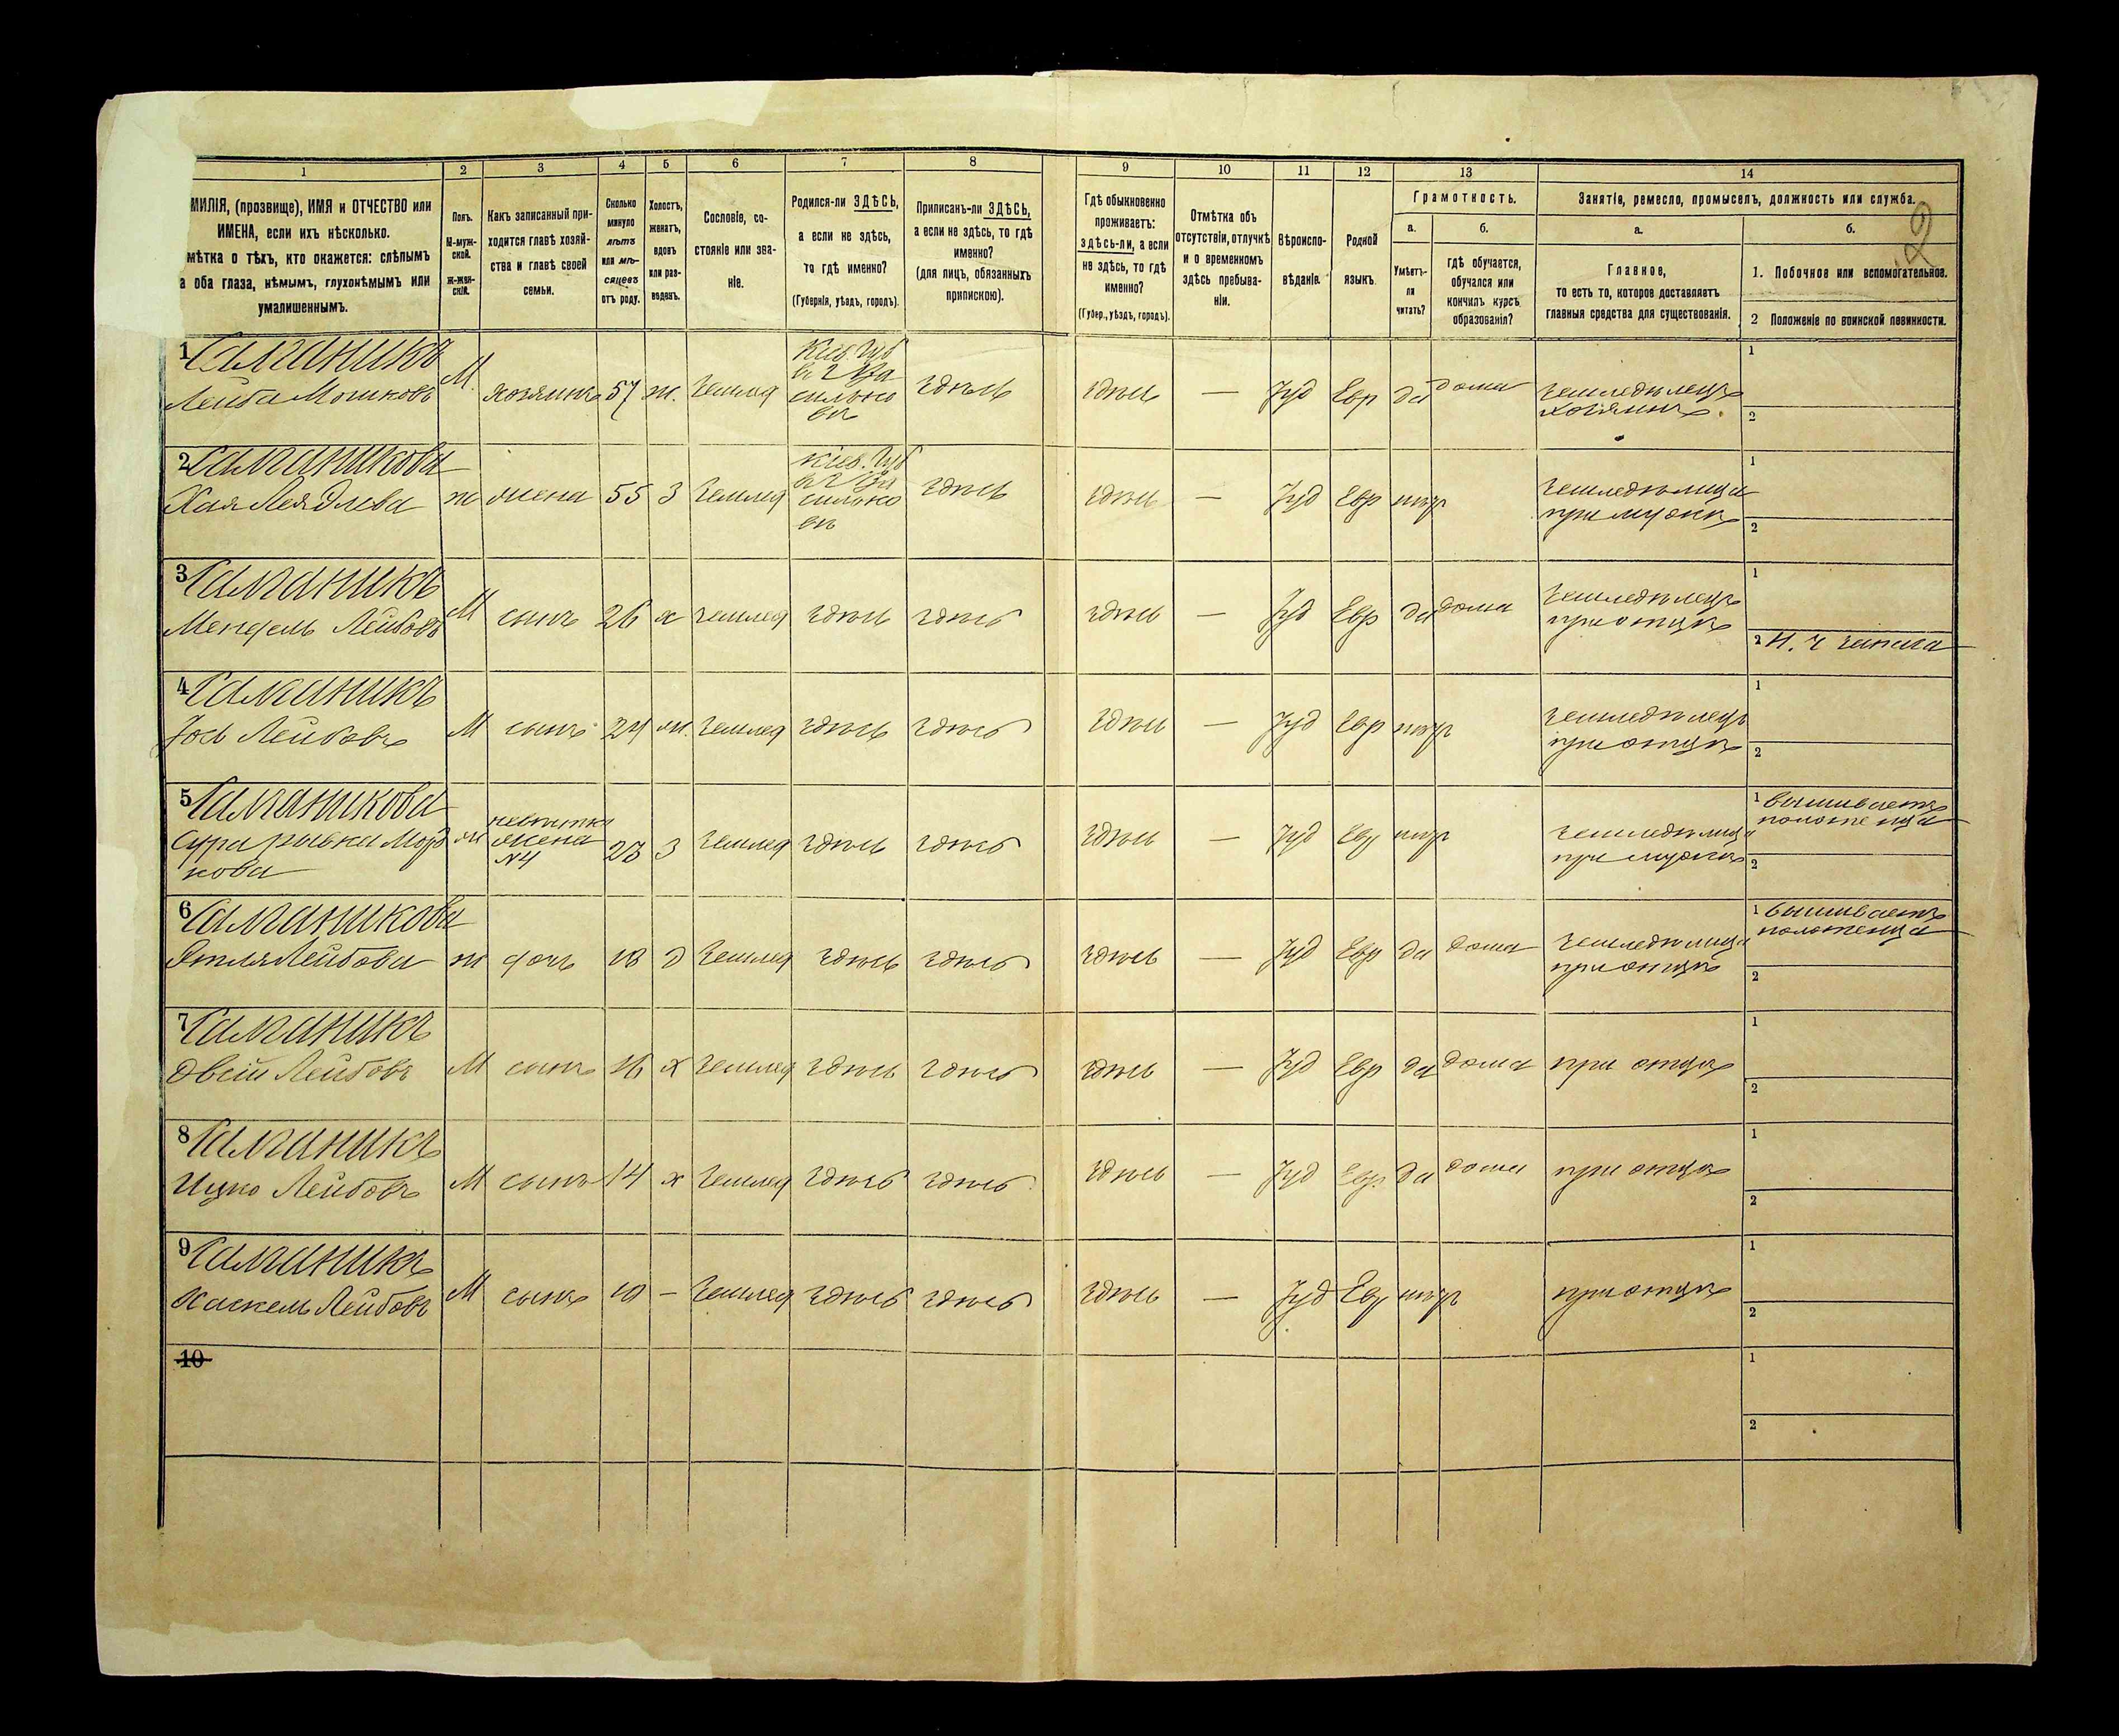 1 2 3 4 5 6 7 8 9 10 11 12 13 14
МИЛІЯ, (прозвище), ИМЯ и ОТЧЕСТВО или
ИМЕНА, если ихъ нѣсколько.
мѣтка о тѣхъ, кто окажется: слѣпымъ
а оба глаза, нѣмымъ, глухонѣмымъ или
умалишеннымъ.
Полъ.
М-муж-
ской.
Ж-жен-
скій.
Какъ записанный при-
ходится главѣ хозяй-
ства и главѣ своей
семьи.
Сколько
минуло
лѣтъ
или мѣ-
сяцевъ
отъ роду.
Холостъ,
женатъ,
вдовъ
или раз-
веденъ.
Сословіе, со-
стояніе или зва-
ніе.
Родился-ли ЗДѢСЬ,
а если не здѣсь,
то гдѣ именно?
(Губернія, уѣздъ, городъ).
Приписанъ-ли ЗДѢСЬ,
а если не здѣсь, то гдѣ
именно?
(для лицъ, обязанныхъ
припискою).
Гдѣ обыкновенно
проживаетъ:
здѣсь-ли, а если
не здѣсь, то гдѣ
именно?
(Губер., уѣздъ, городъ).
Отмѣтка объ
отсутствіи, отлучкѣ
и о временномъ
здѣсь пребыва-
ніи.
Вѣроиспо-
вѣданіе.
Родной
языкъ.
Грамотность.
а.
Умѣетъ-
ли
читать?
б.
гдѣ обучается,
обучался или
кончилъ курсъ
образованія?
Занятіе, ремесло, промыселъ, должность или служба.
а.
Главное,
то есть то, которое доставляетъ
главныя средства для существованія.
б.
1. Побочное или вспомогательное.
2 Положеніе по воинской повинности.
1
Лейба Мошковъ М. хозяинъ 57 ж. Землед Кіев. Губ здѣсь здѣсь — Іуд Евр да дома земледѣлецъ
хозяинъ.
1
2
2
Хая Лея ж жена 55 З Землед Кіев. Губ здѣсь здѣсь — Іуд Евр нѣтъ земледѣлица
при мужѣ
1
2
3
Мендель Лейбовъ М сынъ 26 х землед здѣсь здѣсь здѣсь — Іуд Евр да дома земледѣлецъ
при отцѣ
1
2 Н. Ч запаса
4
Лейбовъ М сынъ 24 ж. Землед здѣсь здѣсь здѣсь — Іуд Евр нѣтъ земледѣлецъ
при отцѣ
1
2
5
Сура Рывка Мор
кова ж невѣстка
жена
N4 23 З Землед здѣсь здѣсь здѣсь — Іуд Евр нѣтъ земледѣлица
при мужѣ
1 вышиваетъ
полотенца
2
6
Лейбова ж дочь 18 д Землед здѣсь здѣсь здѣсь — Іуд Евр да дома земледѣлица
при отцѣ
1 вышиваетъ
полотенца
2
7
Овсій Лейбовъ М сынъ 16 х Землед здѣсь здѣсь здѣсь — Іуд Евр да дома при отцѣ
1
2
8
Ицко Лейбовъ М сынъ 14 х Землед здѣсь здѣсь здѣсь — Іуд Евр. да дома при отцѣ
1
2
9
Хаскель Лейбовъ М сынъ 10 — Землед здѣсь здѣсь здѣсь — Іуд Евр нѣтъ при отцѣ
1
2
10
1
2